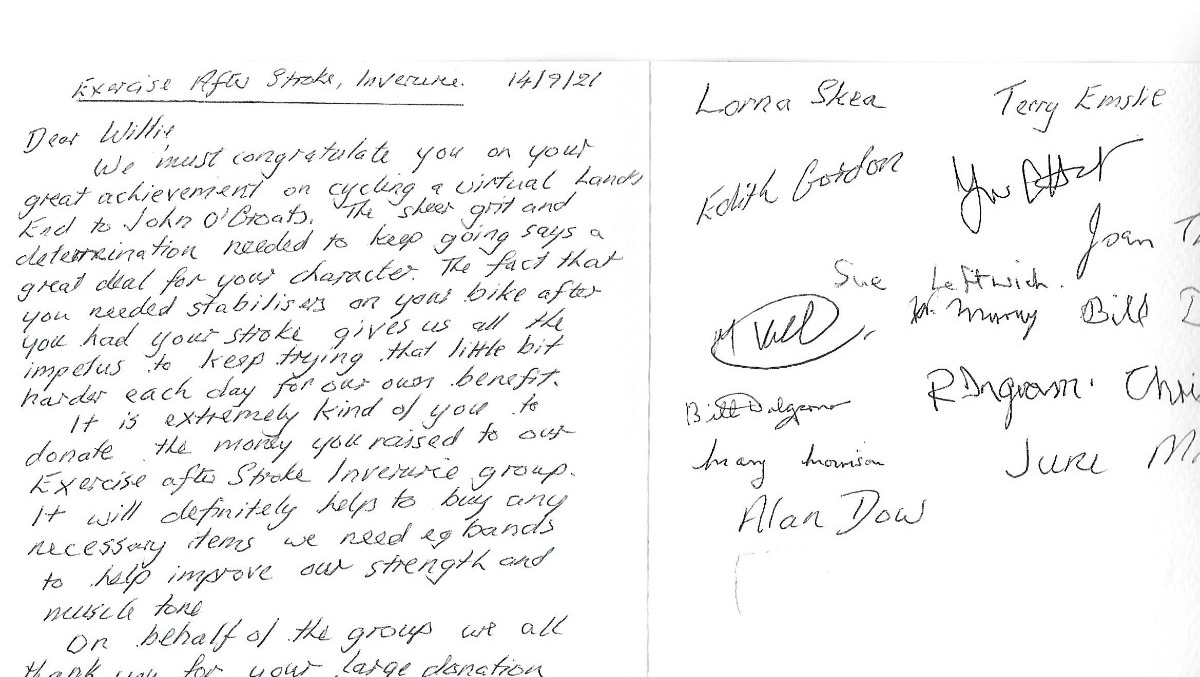 Exercise After Stroke, Inverurie. 14/9/21
Dear Willie
We must congratulate you on your
great achievement on cycling a virtual Lands
End to John O'Groats. The sheer grit and
determination needed to keep going says a
great deal for your character. The fact that
you needed stabilisers on your bike after
you had your stroke gives us all the
impetus to keep trying that little bit
harder each day for our own benefit.
It is extremely kind of you to
donate the money you raised to our
Exercise after Stroke Inverurie group.
It will definitely helps to buy any
necessary items we need eg bands
to help improve our strength and
muscle tone
On behalf of the group we all
thank you for your large donation
Lorna Skea
Terry Emslie
Edith Gordon
Joan
Sue Leftwich.
Bill
R Ingram. Chri
Bill Dalgarno
Mary Morrison
June
Alan Dow